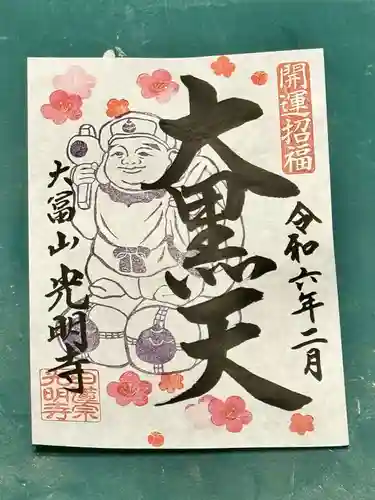 開運招福
令和六年二月
大黒天
大冨山光明寺
日蓮宗
光明寺